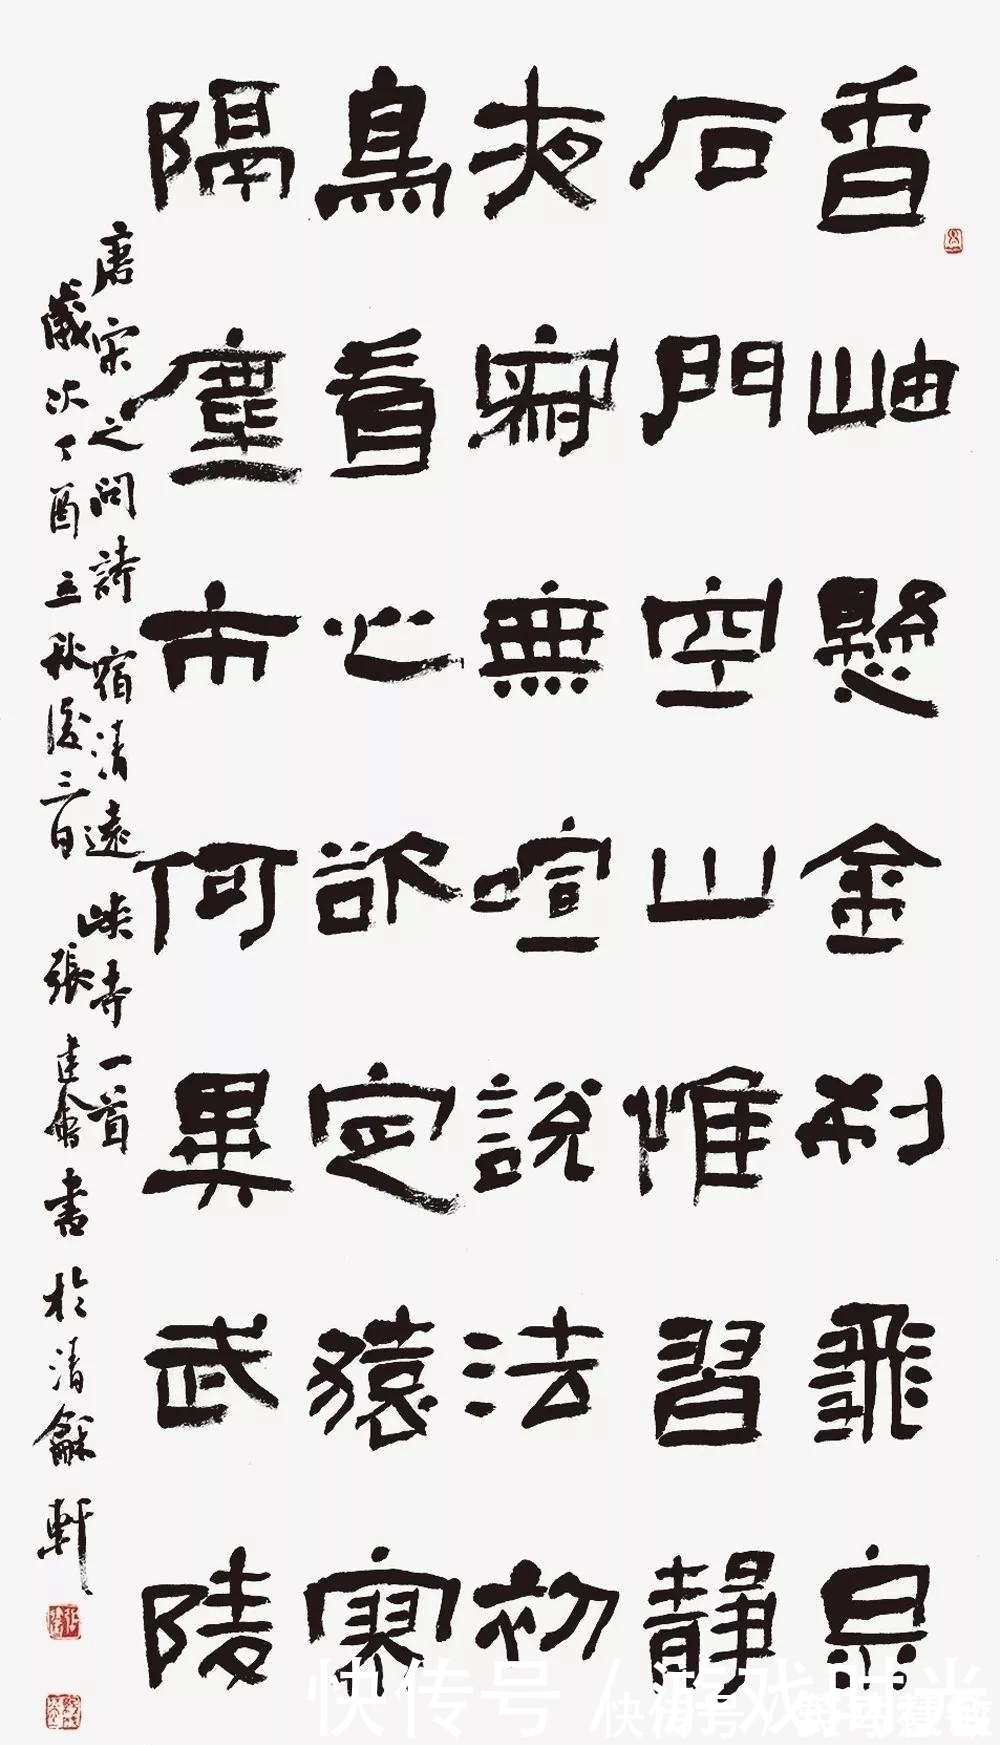 香岫懸金刹飛泉
石門空山惟習靜
夜寂無喧說法初
鳥看心欲定猿寥
隔塵市何異武陵
唐宋之問詩宿清遠峽寺一首
歲次丁酉立秋後三日張建會書於清龢軒
快传号 / 游戏时光
快传号